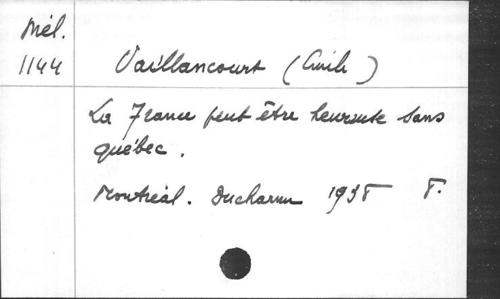 Mél.
1144
Vaillancourt (Emile)
La France peut être heureuse sans
québec.
Montréal. Ducharme 193